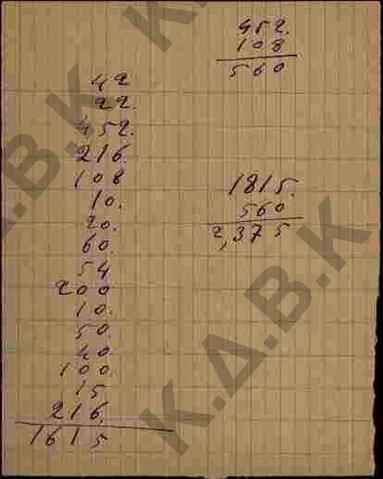 42
22.
452.
216.
108
10.
20.
60.
54
200
10.
50.
40
100.
15
216.
1615
452.
108
560
1815.
560
2,375
Κ.Δ.Β.Κ
Κ.Δ.Β.Κ
Κ.Δ.Β.Κ